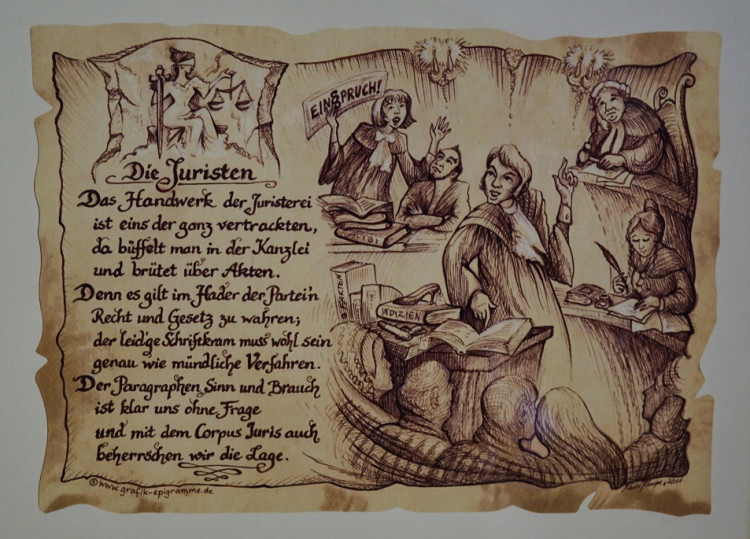 Die Juristen
Das Handwerk der Juristerei
ist eins der ganz vertrackten,
da büffelt man in der Kanzlei
und brütet über Akten.
Denn es gilt im Hader der Partei'n
Recht und Gesetz zu wahren;
der leid'ge Schriftkram muss wohl sein
genau wie mündliche Verfahren.
Der Paragraphen Sinn und Brauch
ist klar uns ohne Frage
und mit dem Corpus Juris auch
beherrschen wir die Lage.
©www.grafik-epigramme.de
EINSPRUCH!
AKTEN
INDIZIEN